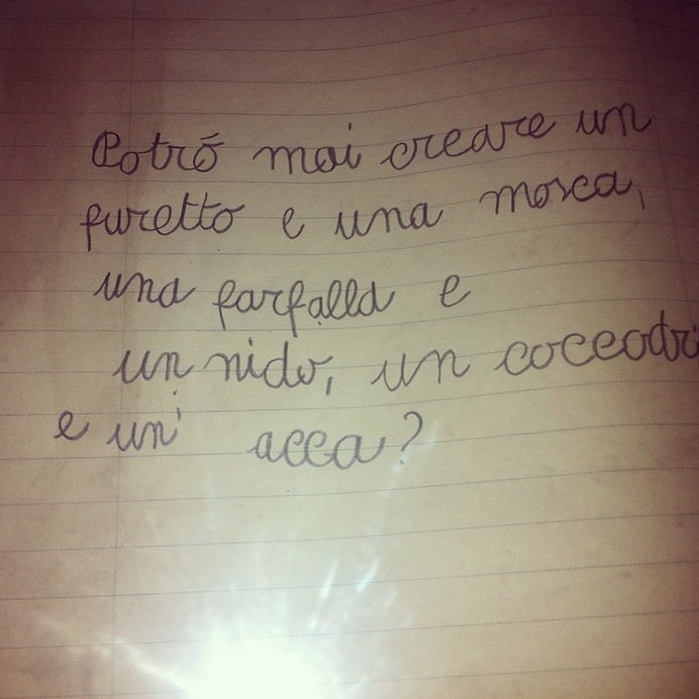 Potró mai creare un
furetto e una mosca,
una farfalla e
un nido, un coccodri
e un' acca?